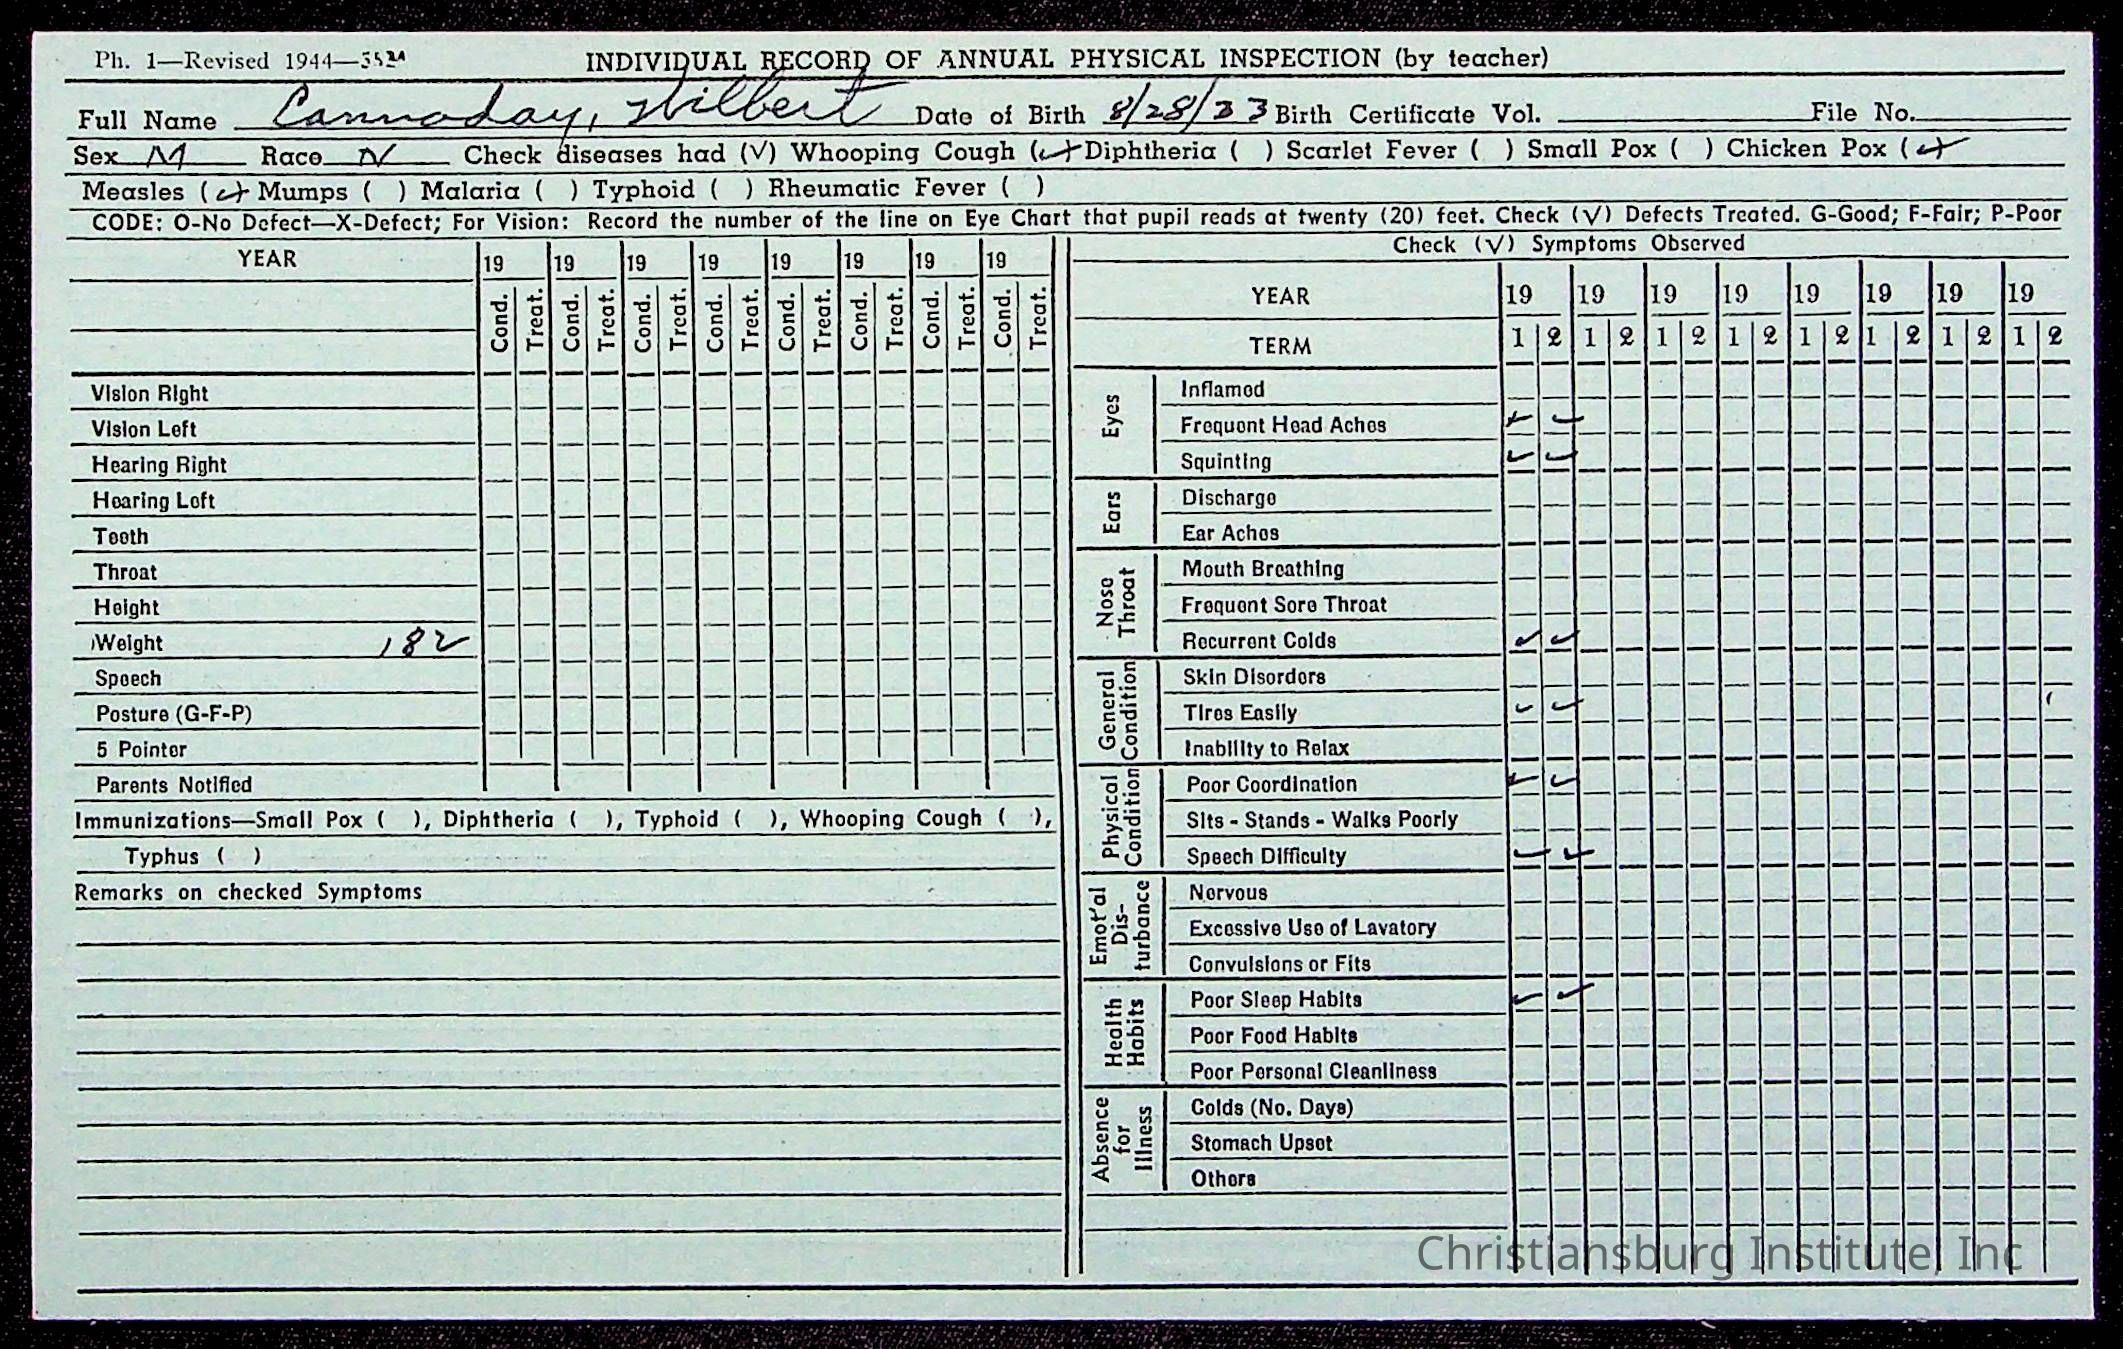 Ph. 1—Revised 1944—3524
INDIVIDUAL RECORD OF ANNUAL PHYSICAL INSPECTION (by teacher)
Full Name Cannaday, Wilbert Date of Birth 8/28/33 Birth Certificate Vol. File No.
Sex M Race N Check diseases had (√) Whooping Cough (✓) Diphtheria ( ) Scarlet Fever ( ) Small Pox ( ) Chicken Pox (✓)
Measles (✓) Mumps ( ) Malaria ( ) Typhoid ( ) Rheumatic Fever ( )
CODE: O-No Defect—X-Defect; For Vision: Record the number of the line on Eye Chart that pupil reads at twenty (20) feet. Check (√) Defects Treated. G-Good; F-Fair; P-Poor
YEAR 19 19 19 19 19 19 19 19
Cond. Treat. Cond. Treat. Cond. Treat. Cond. Treat. Cond. Treat. Cond. Treat. Cond. Treat. Cond. Treat.
Vision Right
Vision Left
Hearing Right
Hearing Left
Teeth
Throat
Height
Weight 182
Speech
Posture (G-F-P)
5 Pointer
Parents Notified
Immunizations—Small Pox ( ), Diphtheria ( ), Typhoid ( ), Whooping Cough ( ),
Typhus ( )
Remarks on checked Symptoms
Check (√) Symptoms Observed
YEAR 19 19 19 19 19 19 19 19
TERM 1 2 1 2 1 2 1 2 1 2 1 2 1 2 1 2
Eyes
Inflamed
Frequent Head Aches ✓ ✓
Squinting ✓ ✓
Ears
Discharge
Ear Aches
Nose Throat
Mouth Breathing
Frequent Sore Throat
Recurrent Colds ✓ ✓
General Condition
Skin Disorders
Tires Easily ✓ ✓
Inability to Relax
Physical Condition
Poor Coordination ✓ ✓
Sits - Stands - Walks Poorly
Speech Difficulty ✓ ✓
Emot'al Dis-turbance
Nervous
Excessive Use of Lavatory
Convulsions or Fits
Health Habits
Poor Sleep Habits ✓ ✓
Poor Food Habits
Poor Personal Cleanliness
Absence for Illness
Colds (No. Days)
Stomach Upset
Others
Christiansburg Institute, Inc